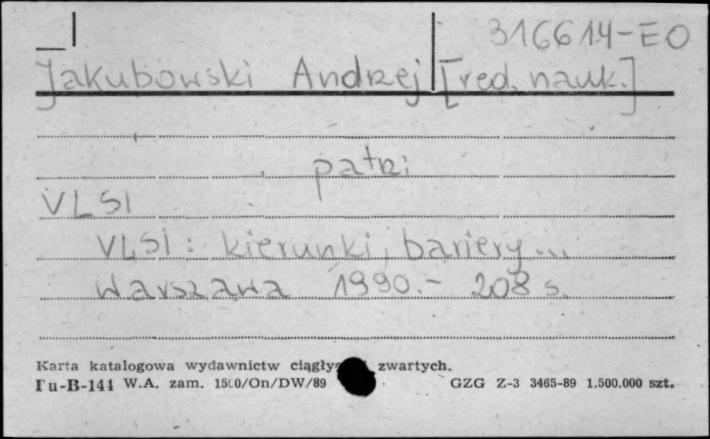 316614-EO
Jakubowski Andrzej [red. nauk.]
patrz
VLSI
VLSI: kierunki, bariery...
Warszawa 1990.- 208 s.
Karta katalogowa wydawnictw zwartych.
Pu-B-144 W.A. zam. 1500/On/DW/89 GZG Z-3 3465-89 1.500.000 szt.